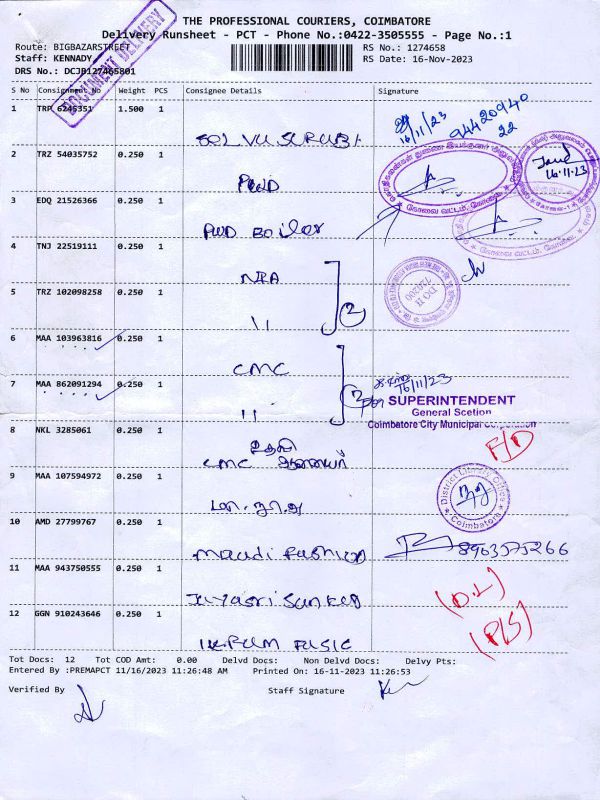 THE PROFESSIONAL COURIERS, COIMBATORE
Delivery Runsheet - PCT - Phone No.:0422-3505555 - Page No.:1
Route: BIGBAZARSTREET
RS No.: 1274658
Staff: KENNADY
RS Date: 16-Nov-2023
DRS No.: DCJB127465801
DOCUMENT DELIVERY
S No Consignment No Weight PCS Consignee Details Signature
1 TRP 6245351 1.500 1
16/11/23
9442094022
SELVU SURABI
2 TRZ 54035752 0.250 1
PWD
16.11.23
3 EDQ 21526366 0.250 1
PWD Boiler
கோவை வட்டம்,
4 TNJ 22519111 0.250 1
NRA
5 TRZ 102098258 0.250 1
11
2
6 MAA 103963816 0.250 1
CMC
7 MAA 862091294 0.250 1
16/11/23
11
SUPERINTENDENT
General Scetion
Coimbatore City Municipal Corporation
8 NKL 3285061 0.250 1
F/D
உதவி
CMC ஆணையர்
9 MAA 107594972 0.250 1
District Library Office
Coimbatore
மா.நூ.அ
10 AMD 27799767 0.250 1
Maudi Fashion
8903575266
11 MAA 943750555 0.250 1
(D.L)
12 GGN 910243646 0.250 1
(P/S)
Tot Docs: 12 Tot COD Amt: 0.00 Delvd Docs: Non Delvd Docs: Delvy Pts:
Entered By :PREMAPCT 11/16/2023 11:26:48 AM Printed On: 16-11-2023 11:26:53
Verified By Staff Signature